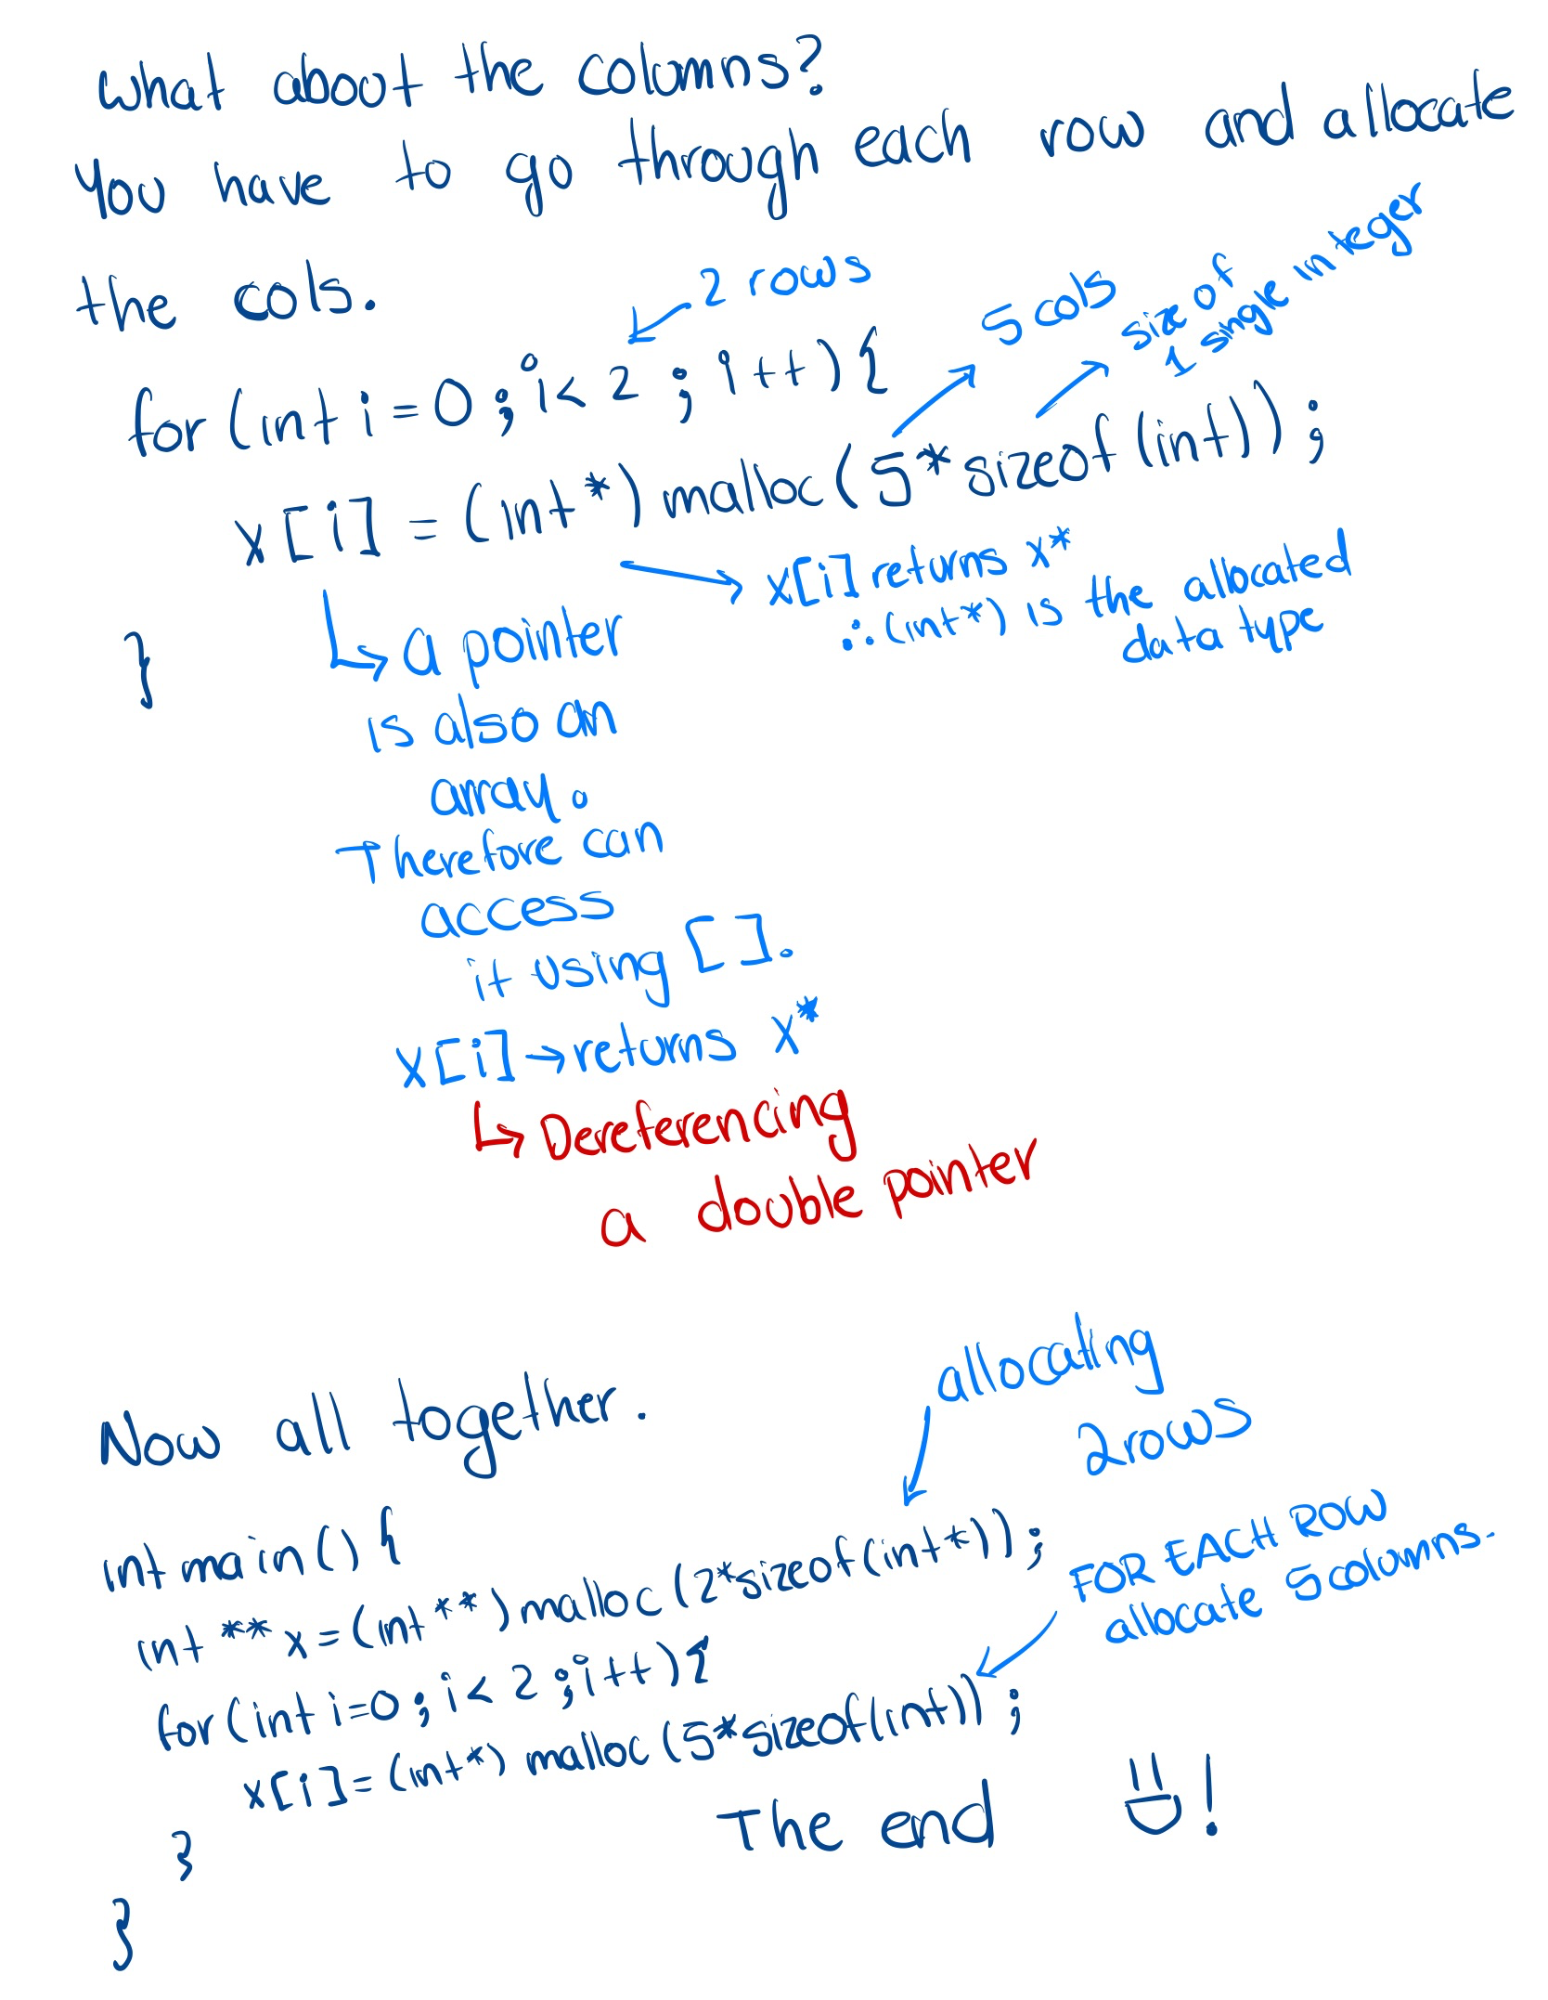 what about the columns?
You have to go through each row and allocate
the cols.
2 rows
5 cols
size of
1 single integer
for (int i = 0 ; i < 2 ; i++) {
x[i] = (int*) malloc (5* sizeof (int)) ;
x[i] returns x*
∴ (int*) is the allocated
data type
}
a pointer
is also an
array.
Therefore can
access
it using [ ].
x[i] → returns x*
Dereferencing
a double pointer
allocating
2 rows
Now all together.
int main () {
int ** x = (int **) malloc (2*sizeof (int*)) ;
FOR EACH ROW
allocate 5 columns.
for (int i=0 ; i < 2 ; i++) {
x[i] = (int*) malloc (5*sizeof(int)) ;
}
The end !
}